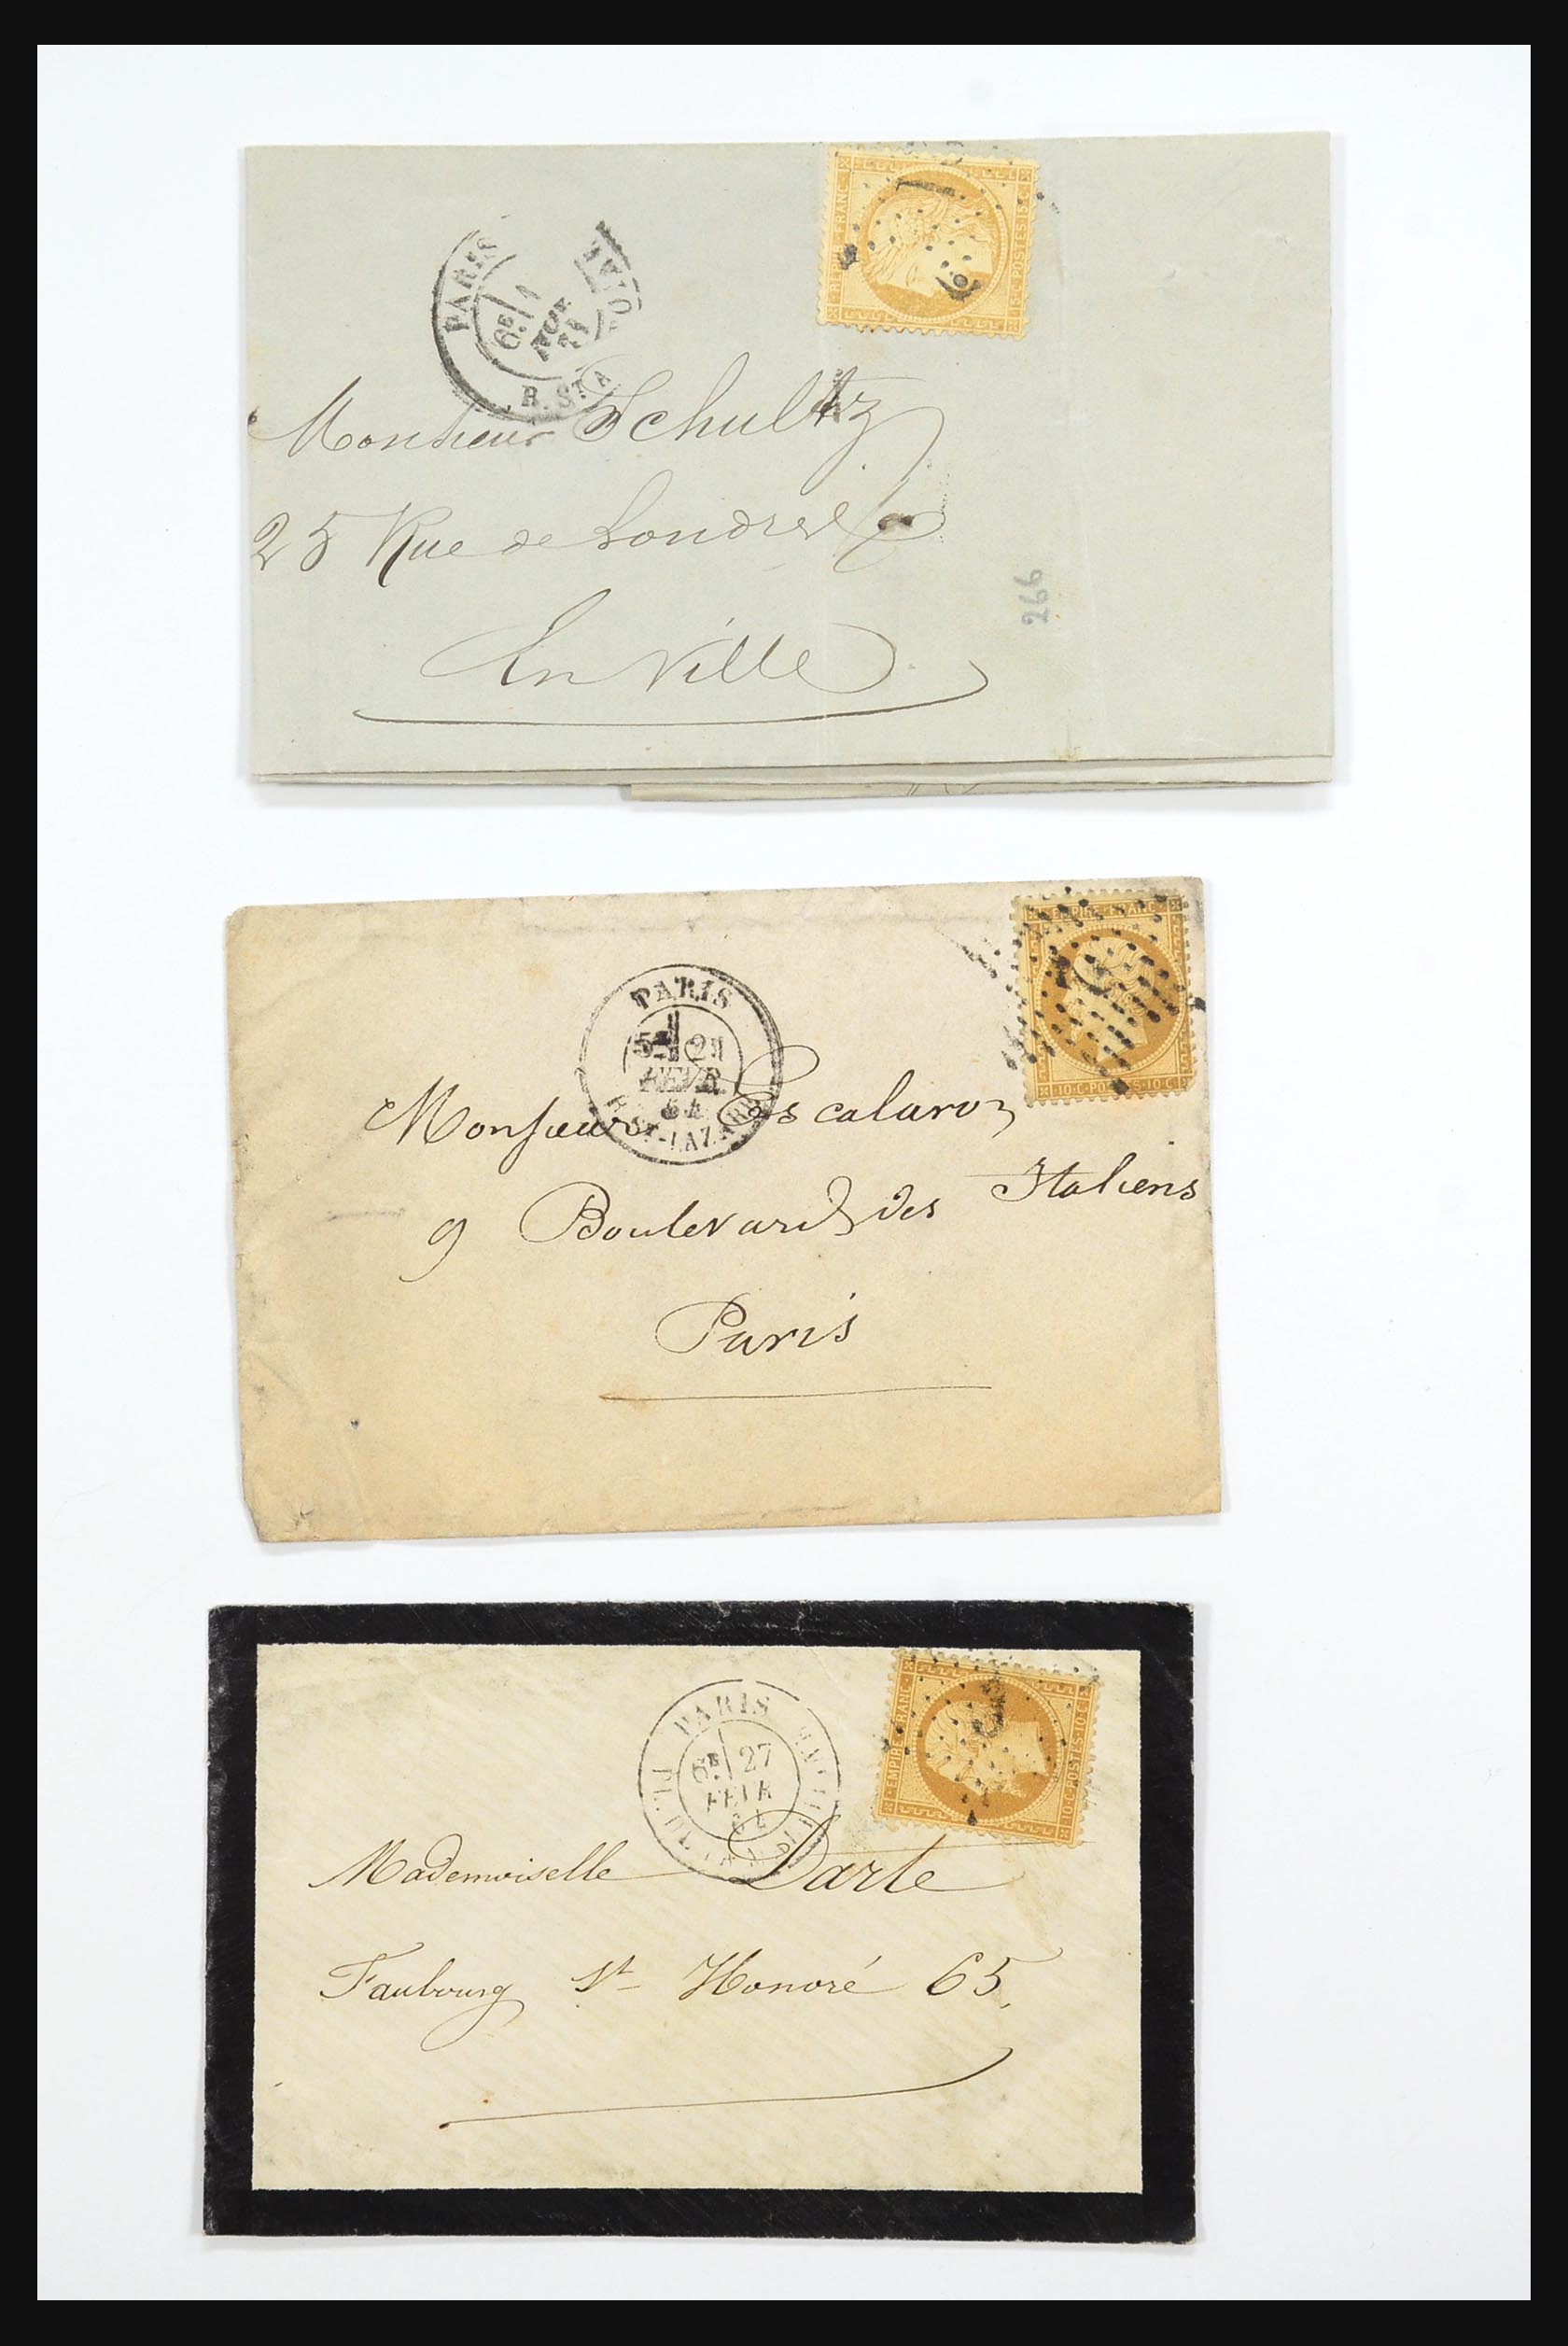 REPUB. FRANC.
15 C. POSTES 15 C.
PARIS
6E 1
R. ST
Monsieur Schultz
25 Rue de Londres
266
En Ville
EMPIRE FRANC
10 C. POSTES 10 C.
PARIS
5E 21
FEVR
64
ST-LAZARE
Monsieur Escalaroz
9 Boulevard des Italiens
Paris
EMPIRE FRANC
10 C. POSTES 10 C.
PARIS
6E 27
FEVR
64
Mademoiselle Darte
Faubourg St Honoré 65.